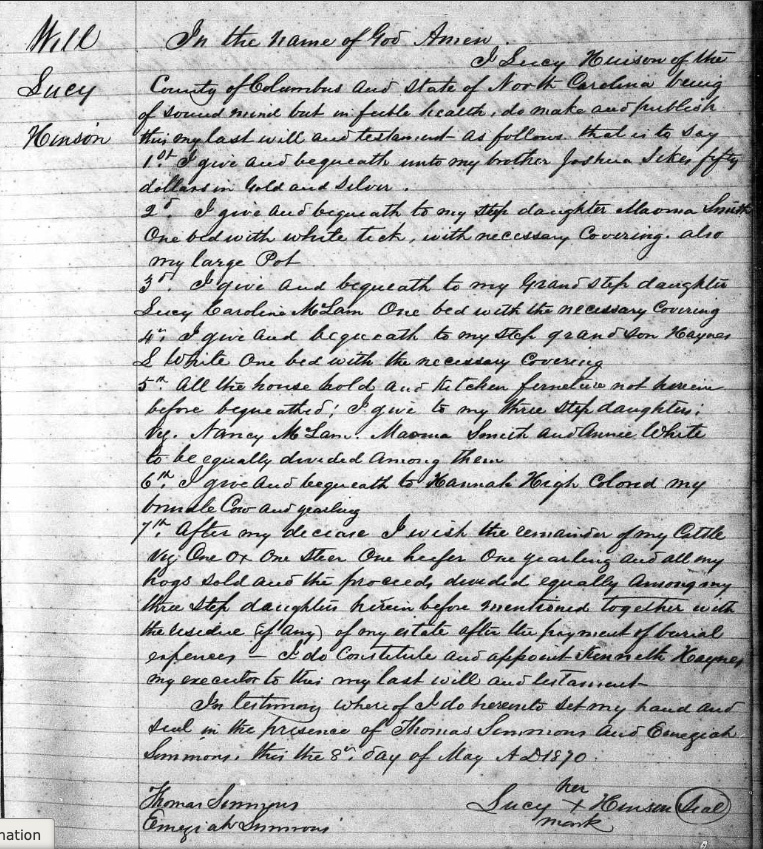 Will
Lucy
Hinson
In the name of God Amen.
I Lucy Hinson of the
County of Columbus and State of North Carolina being
of sound mind but in feble health, do make and publish
this my last will and testament as follows. that is to say
1st I give and bequeath unto my brother Joshua Sikes fifty
dollars in Gold and Silver.
2d. I give and bequeath to my step daughter Maoma Smith
One bed with white tick, with necessary Covering. also
my large Pot
3d. I give and bequeath to my Grand step daughter
Lucy Caroline McLam One bed with the necessary Covering
4th. I give and bequeath to my step grand son Haynes
L White One bed with the necessary Covering
5th. All the house hold and Kitchen ferneture not herein
before bequeathed; I give to my three step daughters;
Viz. Nancy McLam. Maoma Smith and Annie White
to be equally divided among them
6th. I give and bequeath to Hannah High Colord my
brindle Cow and yearling
7th. After my decease I wish the remainder of my Cattle
Viz One ox One Steer One heifer One yearling and all my
hogs sold and the proceeds divided equally among my
three step daughters herein before mentioned together with
the residue (if any) of my estate after the payment of burial
expences - I do Constitute and appoint Kenneth Haynes
my executor to this my last will and testament
In testimony whereof I do hereunto set my hand and
seal in the presence of Thomas Simmons and
Simmons. this the 8th. day of May AD 1870.
her
Thomas Simmons Lucy X Hinson Seal
Simmons mark
nation